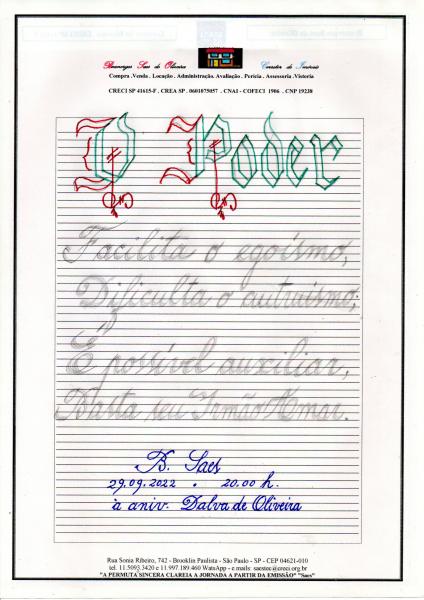 Boanerges Saes de Oliveira Corretor de Imóveis
Compra .Venda . Locação . Administração. Avaliação . Perícia . Assessoria .Vistoria
CRECI SP 41615-F . CREA SP . 0601075057 . CNAI - COFECI 1906 . CNP 19238
O Poder
Facilita o egoísmo,
Dificulta o autruísmo;
É possível auxiliar,
Basta seu Irmão Amar.
B. Saes
29.09.2022 . 20.00 h.
à aniv. Dalva de Oliveira
Rua Sonia Ribeiro, 742 - Brooklin Paulista - São Paulo - SP - CEP 04621-010
tel. 11.5093.3420 e 11.997.189.460 WatsApp - e mails: saestec@creci.org.br
"A PERMUTA SINCERA CLAREIA A JORNADA A PARTIR DA EMISSÃO" "Saes"